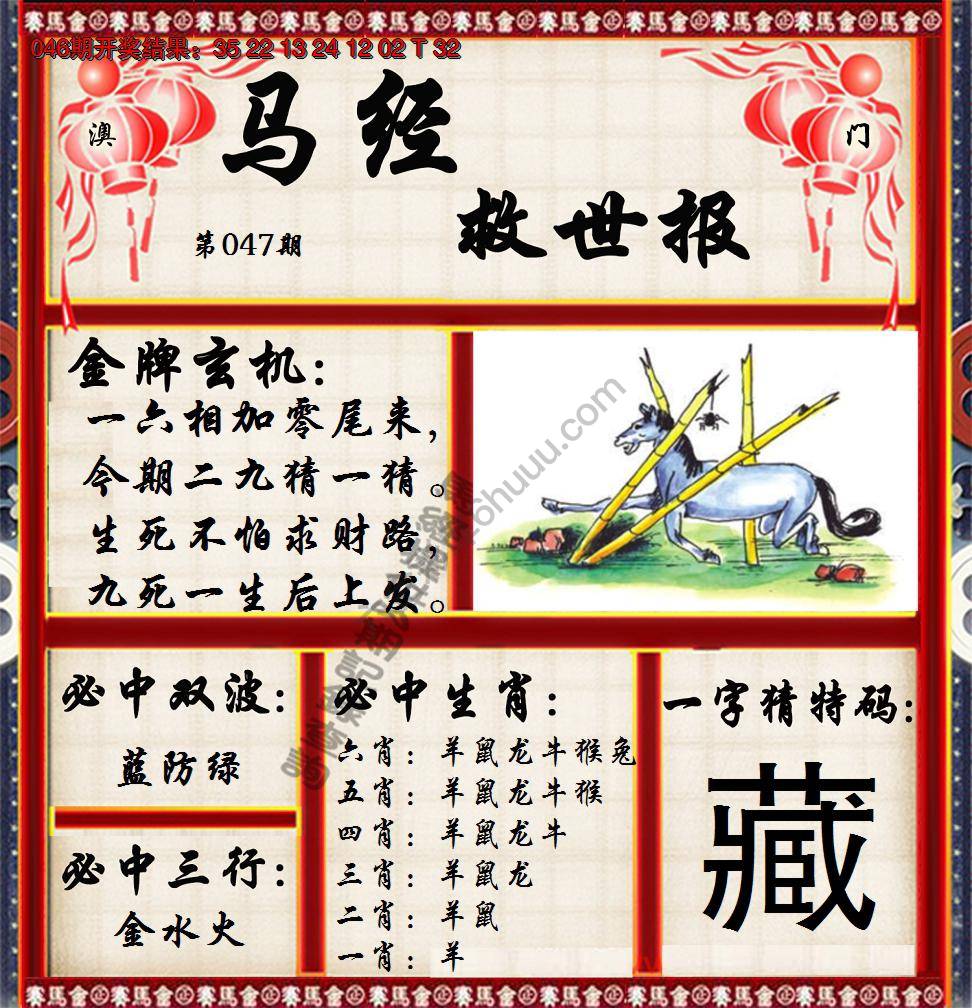 046期开奖结果：35 22 13 24 12 02 T 32
澳
门
马经
救世报
第047期
金牌玄机：
一六相加零尾来，
今期二九猜一猜。
生死不怕求财路，
九死一生后上发。
必中双波：
蓝防绿
必中三行：
金水火
必中生肖：
六肖：羊鼠龙牛猴兔
五肖：羊鼠龙牛猴
四肖：羊鼠龙牛
三肖：羊鼠龙
二肖：羊鼠
一肖：羊
一字猜特码：
藏